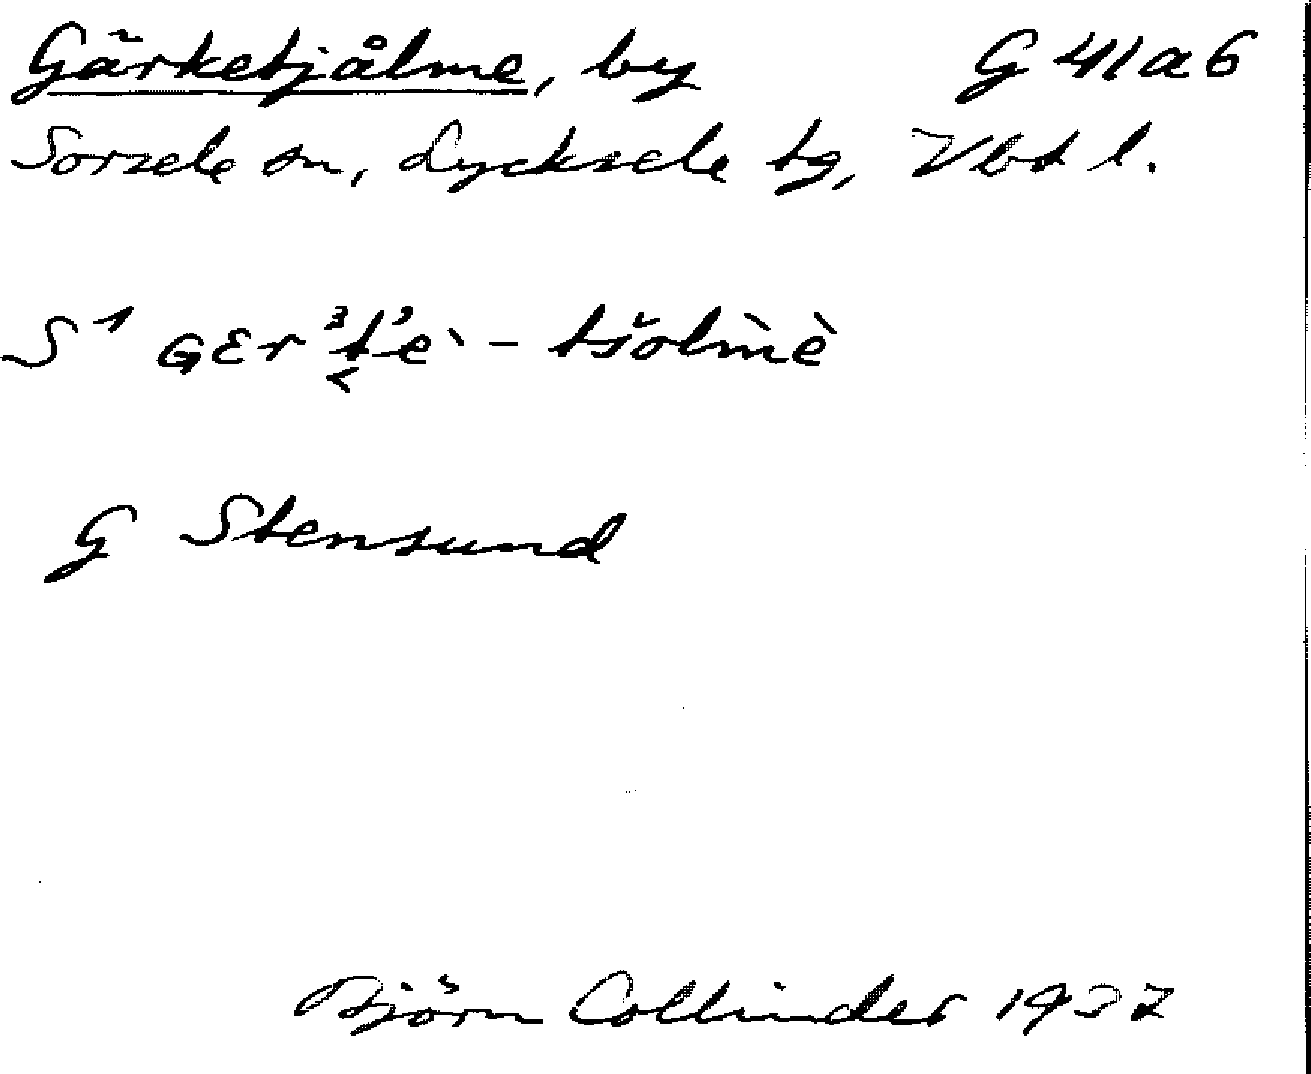 Gärketjålme, by G 41a6
Sorsele sn, Lycksele tg, Vbt l.
S¹ GƐr³t'e` - tšolm̀è
G Stensund
Björn Collinder 1937